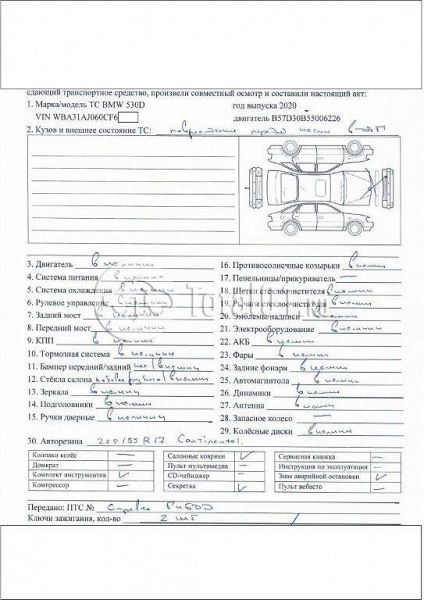 сдающий транспортное средство, произвели совместный осмотр и составили настоящий акт:
1. Марка/модель ТС BMW 530D год выпуска 2020
VIN WBA31AJ060CF6 двигатель B57D30B55006226
2. Кузов и внешнее состояние ТС: повреждение перед части в ДТП
3. Двигатель в наличии
4. Система питания в наличии
5. Система охлаждения в наличии
6. Рулевое управление в наличии
7. Задний мост в наличии
8. Передний мост в наличии
9. КПП в наличии
10. Тормозная система в наличии
11. Бампер передний/задний нет/в наличии
12. Стёкла салона в наличии
13. Зеркала в наличии
14. Подголовники в наличии
15. Ручки дверные в наличии
16. Противосолнечные козырьки в наличии
17. Пепельницы/прикуриватель —
18. Щетки стеклоочистителя в наличии
19. Рычаги стеклоочистителя в наличии
20. Эмблемы/надписи в наличии
21. Электрооборудование в наличии
22. АКБ в наличии
23. Фары в наличии
24. Задние фонари в наличии
25. Автомагнитола в наличии
26. Динамики в наличии
27. Антенна в наличии
28. Запасное колесо —
29. Колёсные диски в наличии
30. Авторезина 225/55 R17 Continental.
Колпаки колёс — Салонные коврики ✓ Сервисная книжка —
Домкрат — Пульт мультимедиа — Инструкция по эксплуатации —
Комплект инструментов ✓ CD-чейнджер — Знак аварийной остановки ✓
Компрессор — Секретка ✓ Пульт вебасто —
Передано: ПТС № Справка
Ключи зажигания, кол-во 2 шт